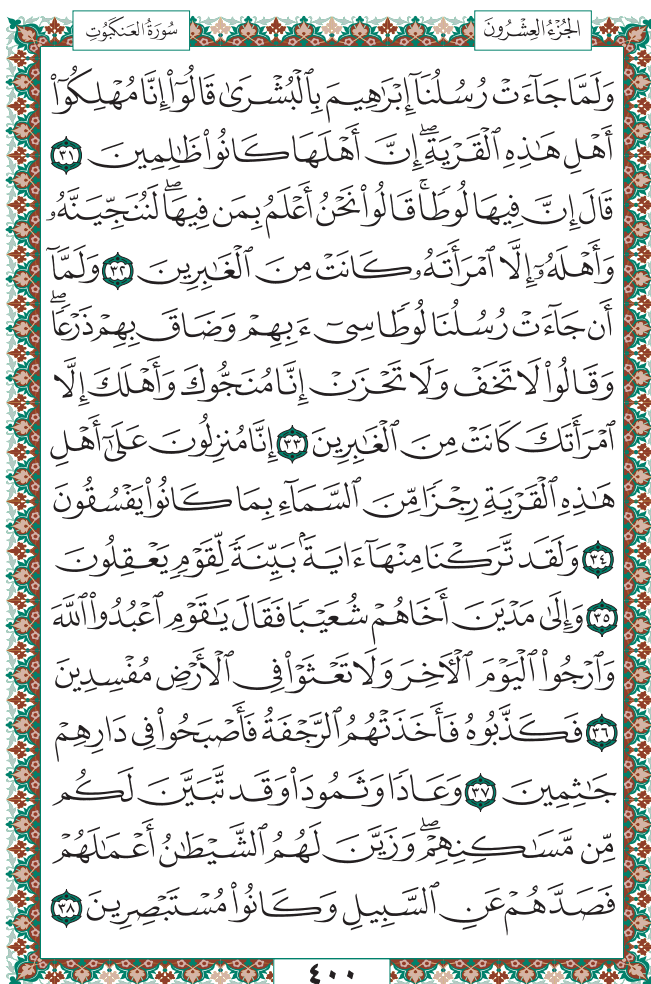 سُورَةُ العَنكَبُوتِ
الجُزْءُ العِشْرُونَ
وَلَمَّا جَآءَتْ رُسُلُنَآ إِبْرَٰهِيمَ بِٱلْبُشْرَىٰ قَالُوٓا۟ إِنَّا مُهْلِكُوٓا۟
أَهْلِ هَٰذِهِ ٱلْقَرْيَةِۖ إِنَّ أَهْلَهَا كَانُوا۟ ظَٰلِمِينَ ٣١
قَالَ إِنَّ فِيهَا لُوطًاۚ قَالُوا۟ نَحْنُ أَعْلَمُ بِمَن فِيهَاۖ لَنُنَجِّيَنَّهُۥ
وَأَهْلَهُۥٓ إِلَّا ٱمْرَأَتَهُۥ كَانَتْ مِنَ ٱلْغَٰبِرِينَ ٣٢ وَلَمَّآ
أَن جَآءَتْ رُسُلُنَا لُوطًا سِىٓءَ بِهِمْ وَضَاقَ بِهِمْ ذَرْعًاۖ
وَقَالُوا۟ لَا تَخَفْ وَلَا تَحْزَنْ إِنَّا مُنَجُّوكَ وَأَهْلَكَ إِلَّا
ٱمْرَأَتَكَ كَانَتْ مِنَ ٱلْغَٰبِرِينَ ٣٣ إِنَّا مُنزِلُونَ عَلَىٰٓ أَهْلِ
هَٰذِهِ ٱلْقَرْيَةِ رِجْزًا مِّنَ ٱلسَّمَآءِ بِمَا كَانُوا۟ يَفْسُقُونَ
٣٤ وَلَقَد تَّرَكْنَا مِنْهَآ ءَايَةًۢ بَيِّنَةً لِّقَوْمٍ يَعْقِلُونَ
٣٥ وَإِلَىٰ مَدْيَنَ أَخَاهُمْ شُعَيْبًا فَقَالَ يَٰقَوْمِ ٱعْبُدُوا۟ ٱللَّهَ
وَٱرْجُوا۟ ٱلْيَوْمَ ٱلْءَاخِرَ وَلَا تَعْثَوْا۟ فِى ٱلْأَرْضِ مُفْسِدِينَ
٣٦ فَكَذَّبُوهُ فَأَخَذَتْهُمُ ٱلرَّجْفَةُ فَأَصْبَحُوا۟ فِى دَارِهِمْ
جَٰثِمِينَ ٣٧ وَعَادًا وَثَمُودَا۟ وَقَد تَّبَيَّنَ لَكُم
مِّن مَّسَٰكِنِهِمْۖ وَزَيَّنَ لَهُمُ ٱلشَّيْطَٰنُ أَعْمَٰلَهُمْ
فَصَدَّهُمْ عَنِ ٱلسَّبِيلِ وَكَانُوا۟ مُسْتَبْصِرِينَ ٣٨
٤٠٠